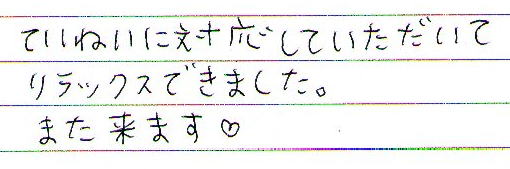 ていねいに対応していただいて
リラックスできました。
また来ます♡